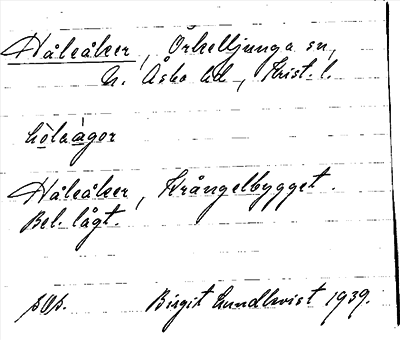 Håleåker, Örkelljunga sn,
N. Åsbo hd, Krist. l.
hòleàgor
Håleåker, Krångelbygget.
Bel. lågt.
pOp. Birgit Lundkvist 1939.